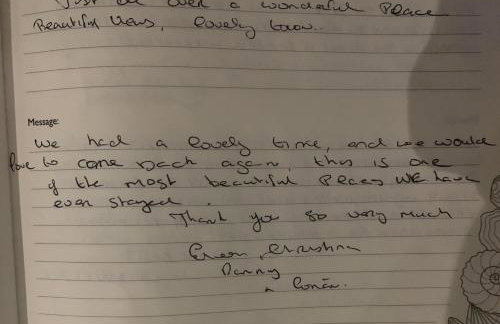 Just all over a wonderful Place
Beautiful views, lovely town.
Message:
We had a lovely time, and we would
love to come back again, this is one
of the most beautiful Places we have
ever stayed.
Thank you so very much
Christina
Danny